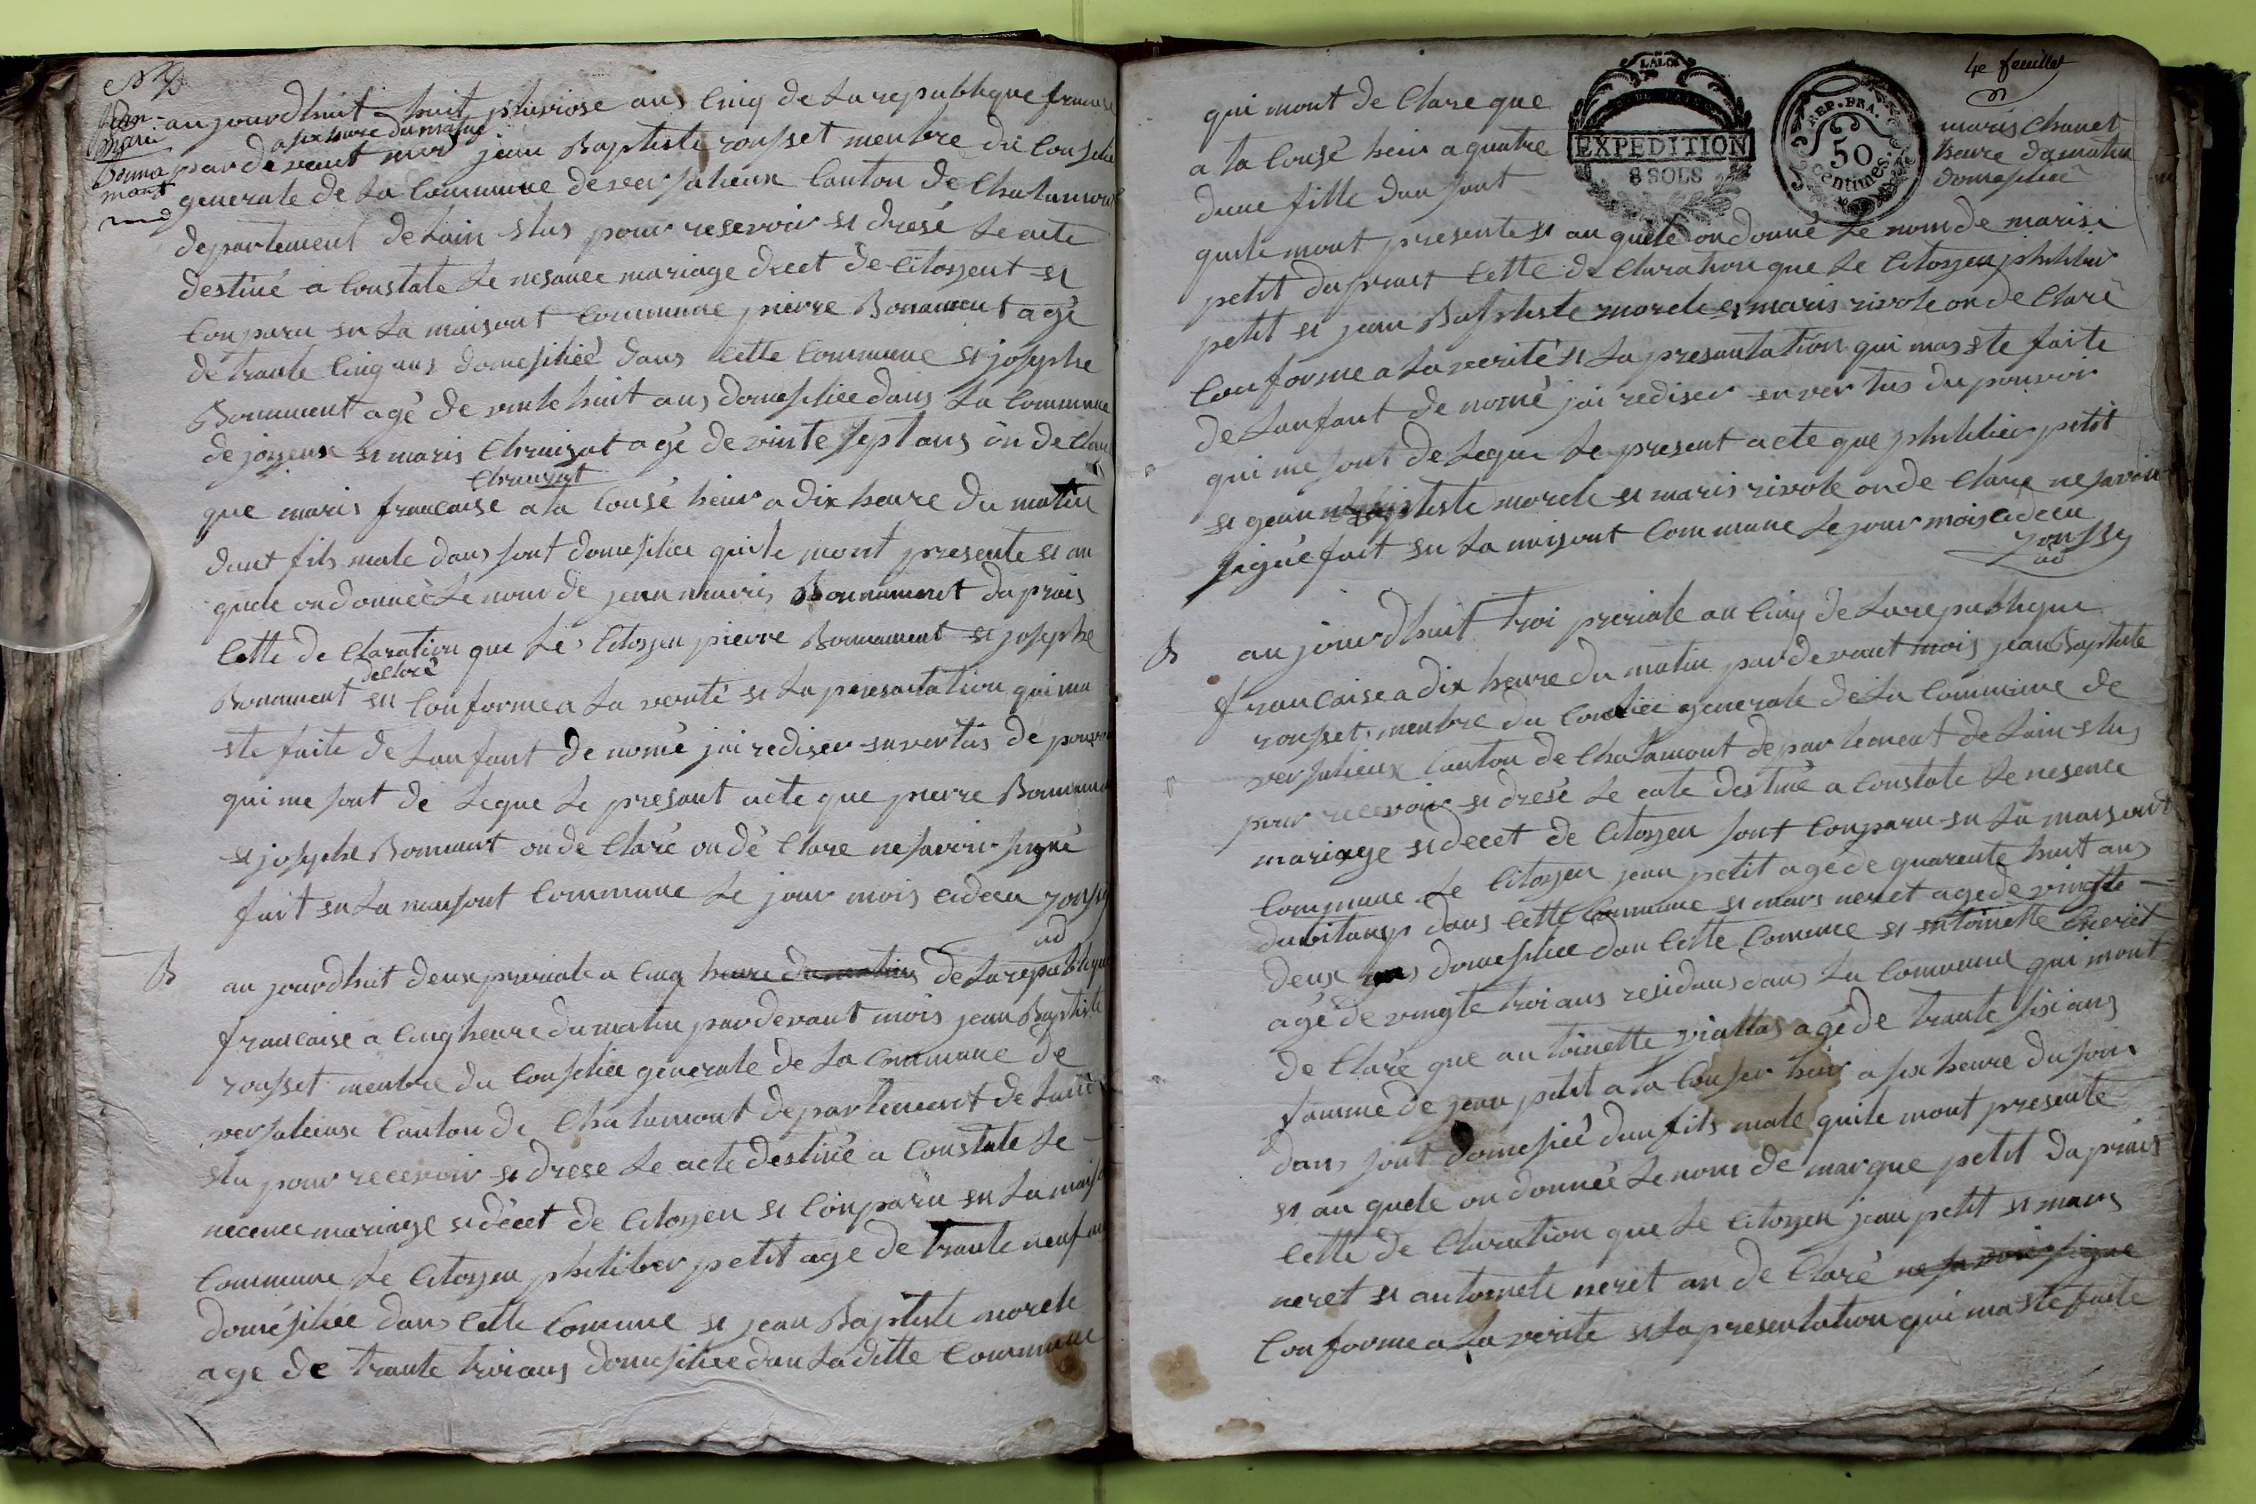 N
jean
mari
Bonna
mant
aujourdhuit huit pluviose ans Cinq de La republique francaise
a six heure du matin
par de vant mois jean Baptiste rousset menbre du Conselie
generale de La Commune de versalieux Canton de Chalamont
departement de Lain Slus pour resevoir si dresé Le acte
destiné a Constate Le nesance mariage decet de Citoyent si
Conparu en La maisont Commune pierre Bonament agé
de trante Cinq ans domesiliée dans Cette Commune si josephe
Bonament agé de vinte huit ans domesiliée dans La Commune
de joyeux si maris agé de vinte sept ans on de Clare
que maris francaise a la Cousé hier a dix heure du matin
dant fils male dans sont domesiliee quile mont presente si au
quele on donneé Le nom de jean maris Bonnament daprais
Cette de Claration que Le Citoyen pierre Bonnament si josephe
declaré
Bonament en Conforme a La verité si La presantation qui ma
ste faite de Lanfant de nomé jai rediser en vertus de pouvoir
qui me sont de Legue Le presant acte que pierre Bonament
si josephe Bonnant on de Claré on dé Clare ne savoir signé
fait en La maisont Commune Le jour mois cideçu rousset
ad
B
au jourdhuit deux preriale a Cinq heure du matin de La republique
francaise a Cinq heure du matin par devant mois jean Baptiste
rousset menbre du Conseliee generale de La Commune de
versalieux Canton de Chalamont departement de Lain
slu pour recevoir si drese Le acte destiné a Constate Le
necence mariage si décet de Citoyen si Conparu en La maison
Commune Le Citoyen philiber petit age de trante neuf ans
domésiliée dans Cette Comune si jean Baptiste morele
age de trante troi ans domesiliee dan La ditte Commune
4e feuillet
LA LOI
EXPEDITION
8 SOLS
REP. FRA.
50
centimes.
qui mont de Clare que maris Chanet
a la Cousé hein a quatre heure du matin
dune fille dan sont domesiliee
quile mont presente si au quele on donné Le nom de marisi
petit daprais Cette de Claration que Le Citoyen philiber
petit si jean Baptiste morele si maris rivole on de Claré
Conforme a La verité si La presantation qui mas ste faite
de Lanfant de nomé jai rediser en ver tus du pouvoir
qui me sont de Legue Le present acte que philiber petit
si jean Baptiste morele si maris rivole on de Clare ne savoir
signé fait en La maisont Commune Le jour mois cideçu
rousset
ad
B
au jourdhuit troi preriale an Cinq de La republique
francaise a dix heure du matin par de vant mois jean Baptiste
rousset menbre du Conseliee generale de La Commune de
versalieux Canton de Chalamont departement de Lain slus
pour recevoir si dresé Le acte destiné a Constate Le nesence
mariage si decet de Citoyen sont Conparu en La maisont
Commune Le Citoyen jean petit agé de quarente huit ans
dans Cette Commune si maris neret agé de vingte
deux ans domesiliee dan Cette Comune si entoinette neret
agé de vingte troi ans residans dans La Commune qui mont
de Claré que antoinette viallas agé de trante sisi ans
famme de jean petit a la Couser hier a six heure du soir
dans sont domesié dun fils male quile mont presente
si au quele on donneé Le nom de marque petit daprais
Cette de Claration que Le Citoyen jean petit si maris
neret si antoinete neret an de Claré ne savoir signe
Conforme a La verite si La presentation qui ma ste faite